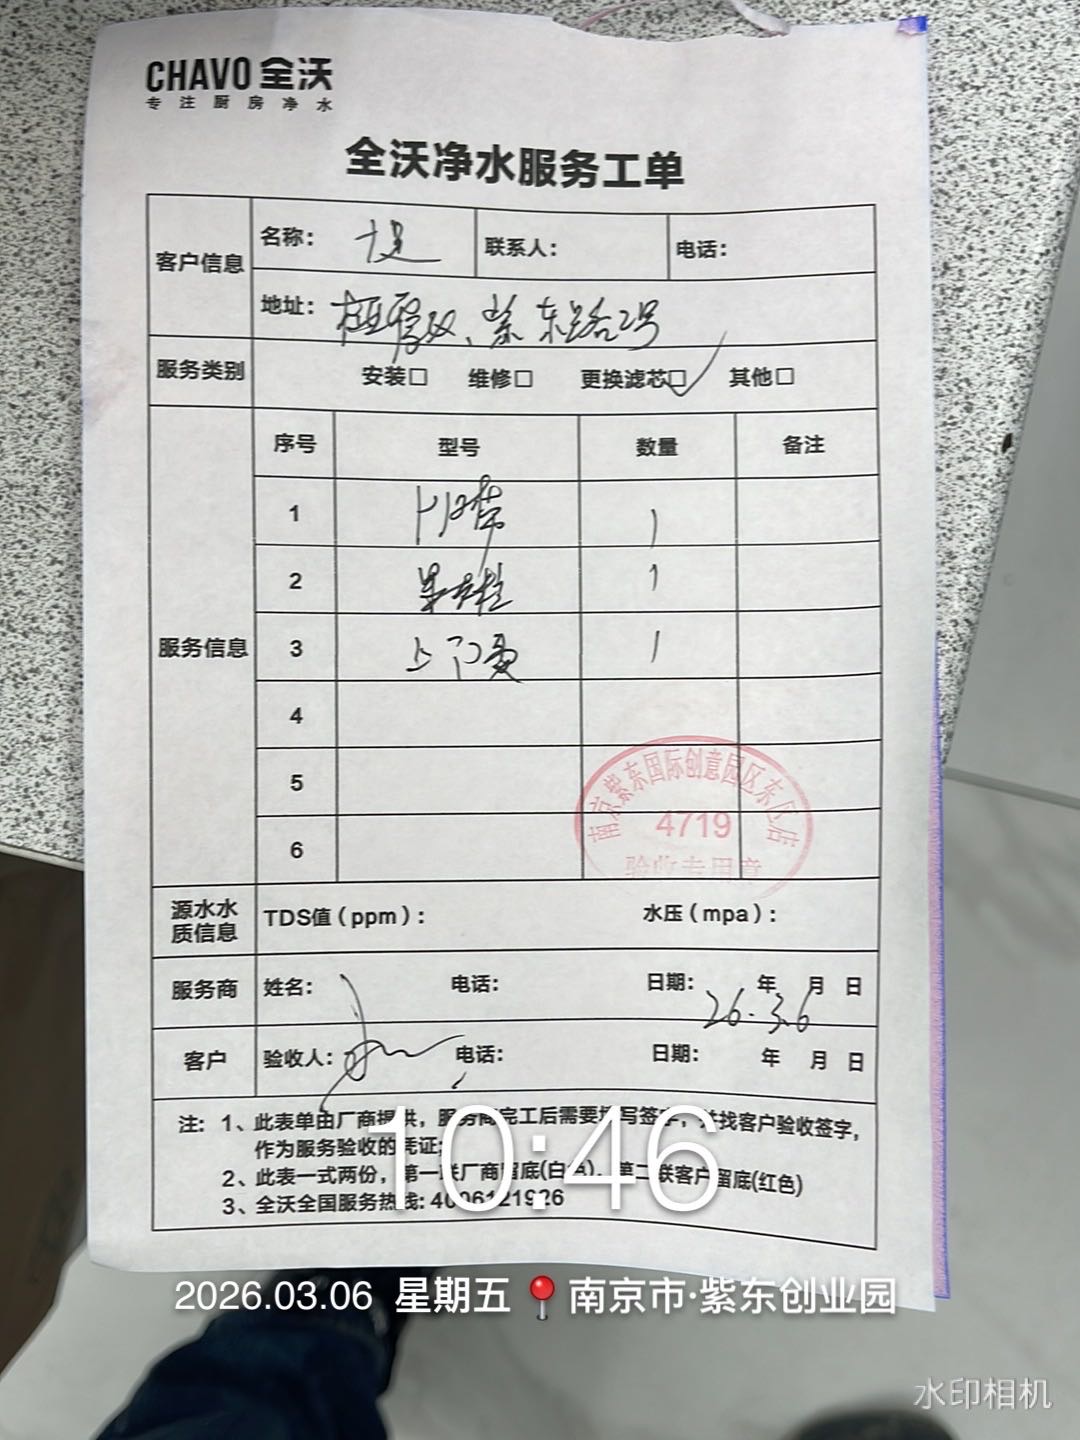 CHAVO 全沃
专注厨房净水
全沃净水服务工单
客户信息 名称： 联系人： 电话：
地址： 紫东路2号
服务类别 安装□ 维修□ 更换滤芯□ 其他□
服务信息 序号 型号 数量 备注
1 1
2 1
3 上门费 1
4
5
6
南京紫东国际创意园区东区店
4719
验收专用章
源水水质信息 TDS值（ppm）： 水压（mpa）：
服务商 姓名： 电话： 日期： 年 月 日
26.3.6
客户 验收人： 电话： 日期： 年 月 日
注： 1、此表单由厂商提供，服务商完工后需要填写签字，并找客户验收签字，
作为服务验收的凭证；
2、此表一式两份，第一联厂商留底(白色)、第二联客户留底(红色)
3、全沃全国服务热线：4006121926
10:46
2026.03.06 星期五 南京市·紫东创业园
水印相机